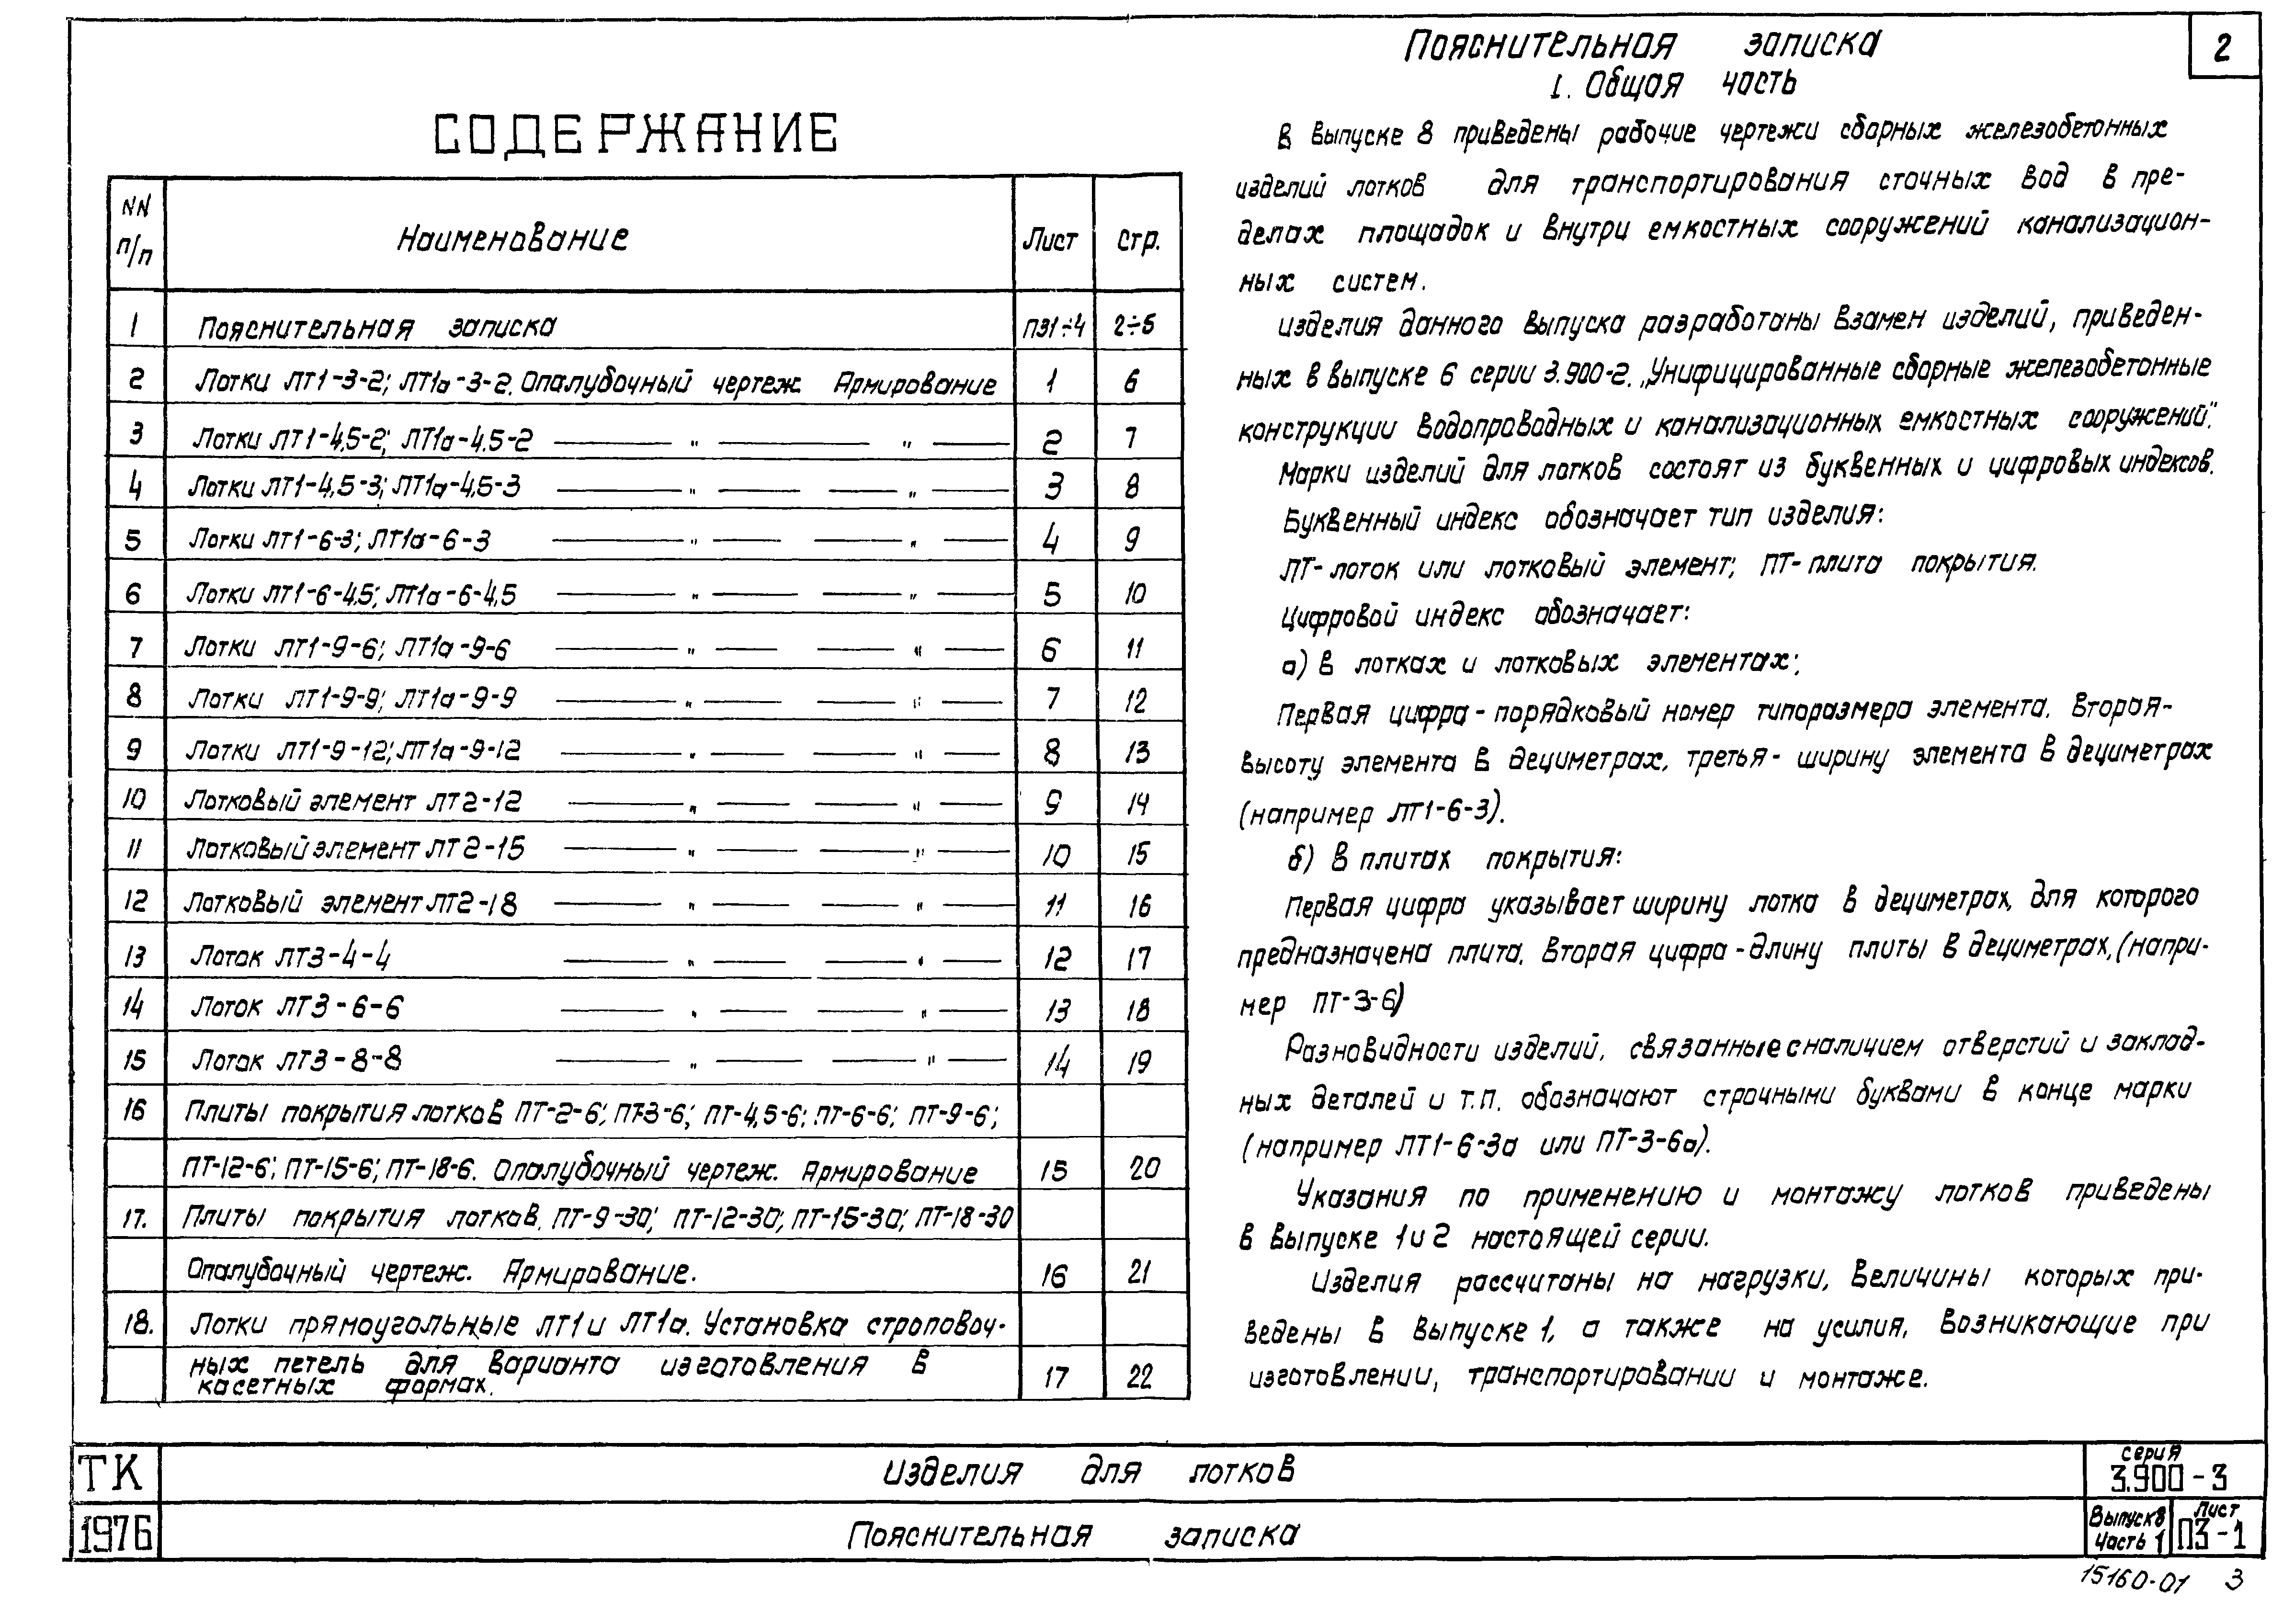 2
СОДЕРЖАНИЕ
NN п/п Наименование Лист Стр.
1 Пояснительная записка ПЗ1÷4 2÷5
2 Лотки ЛТ1-3-2; ЛТ1а-3-2. Опалубочный чертеж Армирование 1 6
3 Лотки ЛТ1-4,5-2; ЛТ1а-4.5-2 — " — " — 2 7
4 Лотки ЛТ1-4,5-3; ЛТ1а-4,5-3 — " — " — 3 8
5 Лотки ЛТ1-6-3; ЛТ1а-6-3 — " — " — 4 9
6 Лотки ЛТ1-6-4,5; ЛТ1а-6-4,5 — " — " — 5 10
7 Лотки ЛТ1-9-6; ЛТ1а-9-6 — " — " — 6 11
8 Лотки ЛТ1-9-9; ЛТ1а-9-9 — " — " — 7 12
9 Лотки ЛТ1-9-12; ЛТ1а-9-12 — " — " — 8 13
10 Лотковый элемент ЛТ2-12 — " — " — 9 14
11 Лотковый элемент ЛТ2-15 — " — " — 10 15
12 Лотковый элемент ЛТ2-18 — " — " — 11 16
13 Лоток ЛТ3-4-4 — " — " — 12 17
14 Лоток ЛТ3-6-6 — " — " — 13 18
15 Лоток ЛТ3-8-8 — " — " — 14 19
16 Плиты покрытия лотков ПТ-2-6; ПТ-3-6; ПТ-4,5-6; ПТ-6-6; ПТ-9-6;
ПТ-12-6; ПТ-15-6; ПТ-18-6. Опалубочный чертеж. Армирование 15 20
17. Плиты покрытия лотков. ПТ-9-30; ПТ-12-30; ПТ-15-30; ПТ-18-30
Опалубочный чертеж. Армирование. 16 21
18. Лотки прямоугольные ЛТ1 и ЛТ1а. Установка строповоч-
ных петель для варианта изготовления в
касетных формах. 17 22
Пояснительная записка
I. Общая часть
В выпуске 8 приведены рабочие чертежи сборных железобетонных
изделий лотков для транспортирования сточных вод в пре-
делах площадок и внутри емкостных сооружений канализацион-
ных систем.
Изделия данного выпуска разработаны взамен изделий, приведен-
ных в выпуске 6 серии 3.900-2. „Унифицированные сборные железобетонные
конструкции водопроводных и канализационных емкостных сооружений".
Марки изделий для лотков состоят из буквенных и цифровых индексов.
Буквенный индекс обозначает тип изделия:
ЛТ- лоток или лотковый элемент; ПТ- плита покрытия.
Цифровой индекс обозначает:
а) в лотках и лотковых элементах;
Первая цифра - порядковый номер типоразмера элемента. Вторая-
высоту элемента в дециметрах, третья - ширину элемента в дециметрах
(например ЛТ1-6-3).
б) в плитах покрытия:
Первая цифра указывает ширину лотка в дециметрах, для которого
предназначена плита. Вторая цифра - длину плиты в дециметрах, (напри-
мер ПТ-3-6)
Разновидности изделий, связанные с наличием отверстий и заклад-
ных деталей и т.п. обозначают строчными буквами в конце марки
(например ЛТ1-6-3а или ПТ-3-6а).
Указания по применению и монтажу лотков приведены
в выпуске 1 и 2 настоящей серии.
Изделия рассчитаны на нагрузки, величины которых при-
ведены в выпуске 1, а также на усилия, возникающие при
изготовлении, транспортировании и монтаже.
ТК Изделия для лотков серия 3.900-3
1976 Пояснительная записка Выпуск 8 Часть 1 Лист ПЗ-1
15160-01 3